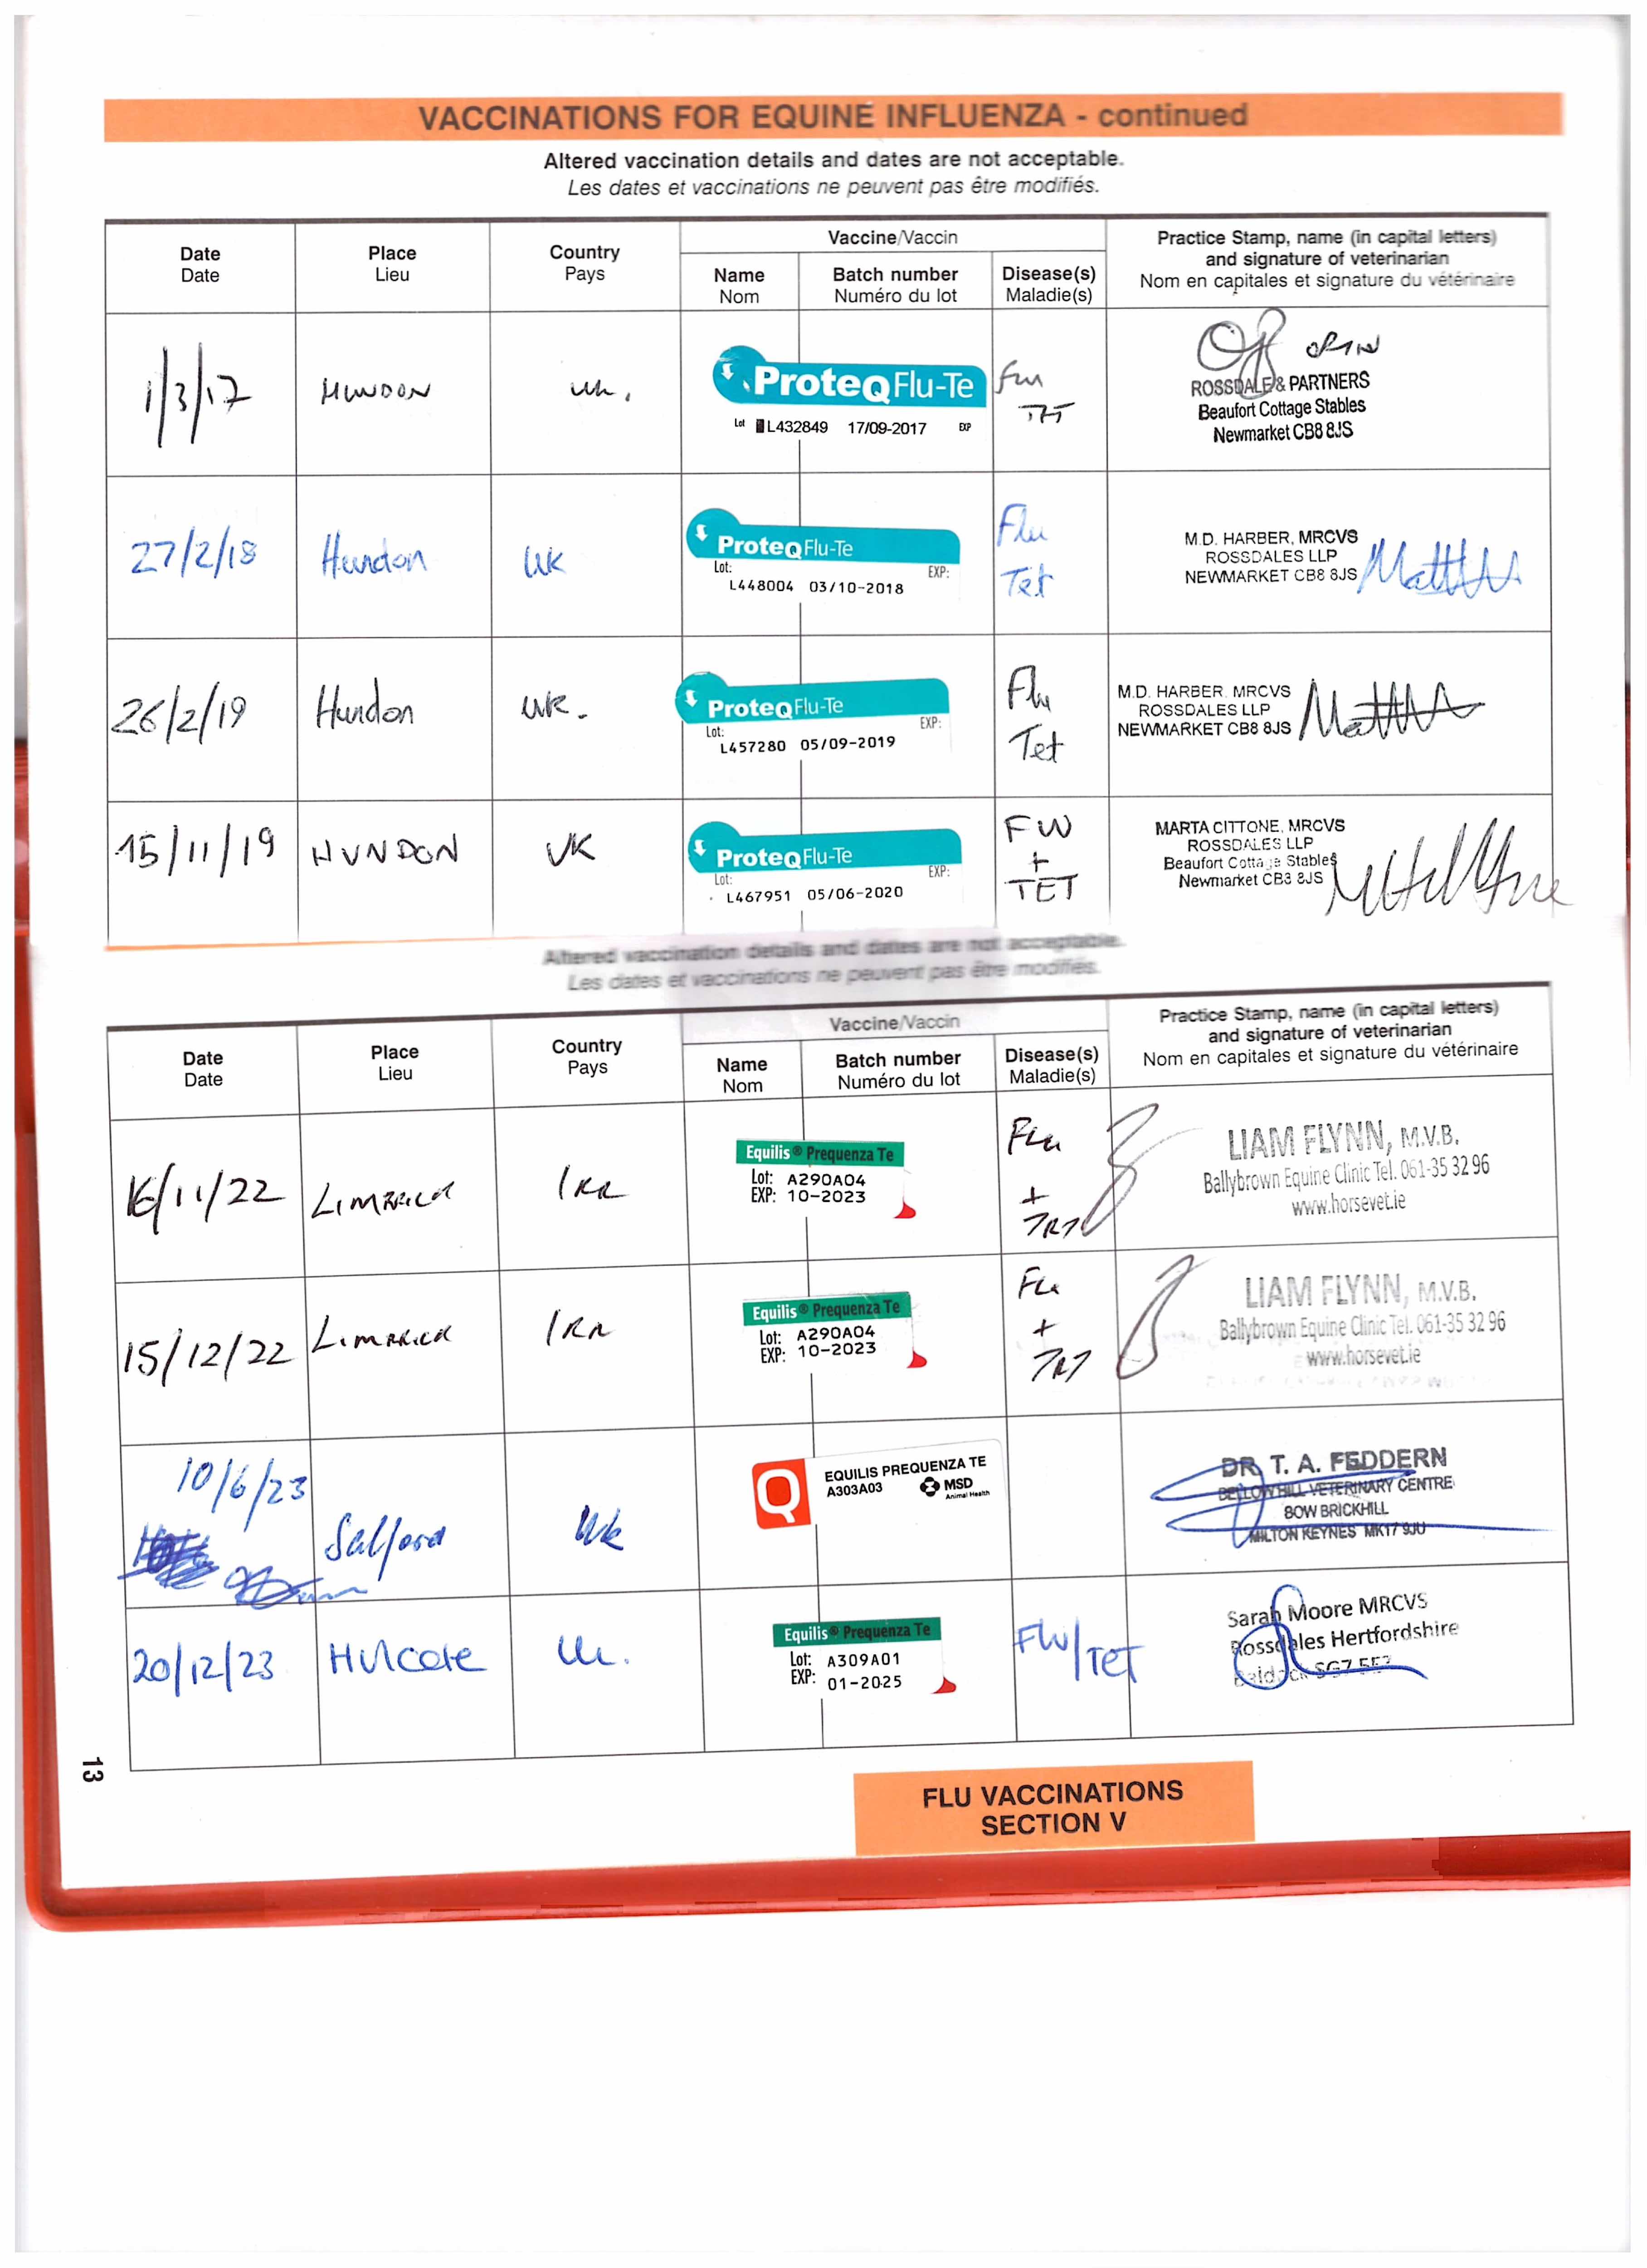 VACCINATIONS FOR EQUINE INFLUENZA - continued
Altered vaccination details and dates are not acceptable.
Les dates et vaccinations ne peuvent pas être modifiés.
Date
Date
Place
Lieu
Country
Pays
Vaccine/Vaccin
Name
Nom
Batch number
Numéro du lot
Disease(s)
Maladie(s)
Practice Stamp, name (in capital letters)
and signature of veterinarian
Nom en capitales et signature du vétérinaire
1/3/17
HUNDON
UK.
ProteqFlu-Te
Lot L432849 17/09-2017 EXP
Flu
TET
ROSSDALE & PARTNERS
Beaufort Cottage Stables
Newmarket CB8 8JS
27/2/18
Hundon
UK
ProteqFlu-Te
Lot: EXP:
L448004 03/10-2018
Flu
Tet
M.D. HARBER, MRCVS
ROSSDALES LLP
NEWMARKET CB8 8JS
26/2/19
Hundon
UK.
ProteqFlu-Te
Lot: EXP:
L457280 05/09-2019
Flu
Tet
M.D. HARBER. MRCVS
ROSSDALES LLP
NEWMARKET CB8 8JS
15/11/19
HUNDON
UK
ProteqFlu-Te
Lot: EXP:
L467951 05/06-2020
FLU
+
TET
MARTA CITTONE, MRCVS
ROSSDALES LLP
Beaufort Cottage Stables
Newmarket CB8 8JS
Altered vaccination details and dates are not acceptable.
Les dates et vaccinations ne peuvent pas être modifiés.
Date
Date
Place
Lieu
Country
Pays
Vaccine/Vaccin
Name
Nom
Batch number
Numéro du lot
Disease(s)
Maladie(s)
Practice Stamp, name (in capital letters)
and signature of veterinarian
Nom en capitales et signature du vétérinaire
16/11/22
LIMERICK
IRE
Equilis® Prequenza Te
Lot: A290A04
EXP: 10-2023
Flu
+
TET
LIAM FLYNN, M.V.B.
Ballybrown Equine Clinic Tel. 061-35 32 96
www.horsevet.ie
15/12/22
LIMERICK
IRE
Equilis® Prequenza Te
Lot: A290A04
EXP: 10-2023
Flu
+
TET
LIAM FLYNN, M.V.B.
Ballybrown Equine Clinic Tel. 061-35 32 96
www.horsevet.ie
10/6/23
Salford
UK
Q
EQUILIS PREQUENZA TE
A303A03 MSD
Animal Health
DR. T. A. FEDDERN
BELLOW HILL VETERINARY CENTRE
BOW BRICKHILL
MILTON KEYNES MK17 9JU
20/12/23
Hulcote
UK.
Equilis® Prequenza Te
Lot: A309A01
EXP: 01-2025
FLU/TET
Sarah Moore MRCVS
Rossdales Hertfordshire
Baldock SG7
13
FLU VACCINATIONS
SECTION V